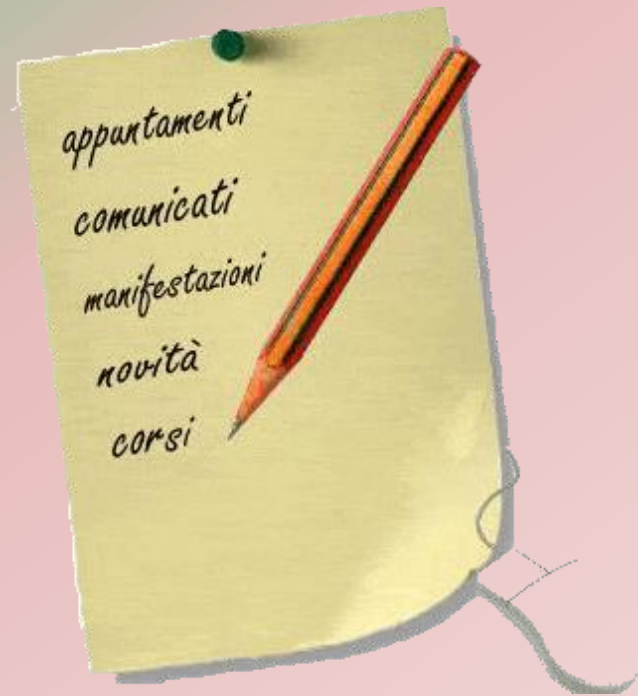 appuntamenti
comunicati
manifestazioni
novità
corsi